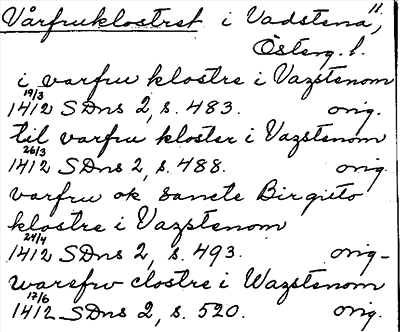 Vårfruklostret i Vadstena, 11.
Österg. l.
i varfru klostre i Vazstenom
19/3
1412 SDns 2, s. 483. orig.
til varfru kloster i Vazstenom
26/3
1412 SDns 2, s. 488. orig.
varfru ok sancte Birgitto
klostre i Vazstenom
24/4
1412 SDns 2, s. 493. orig.
warefrv clostre i Wazstenom
17/6
1412 SDns 2, s. 520. orig.